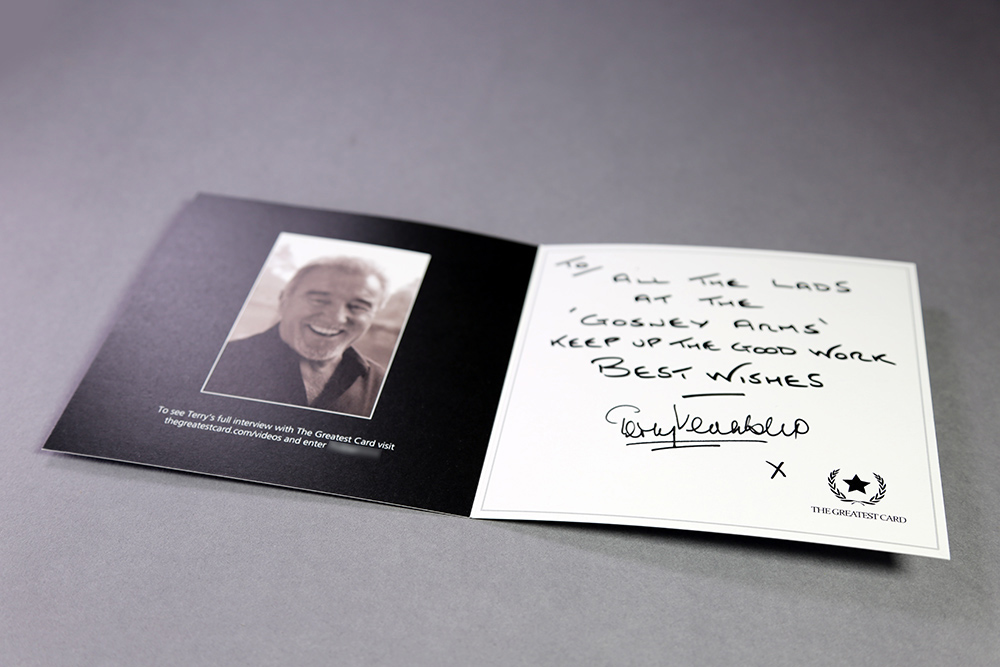 To see Terry's full interview with The Greatest Card visit
thegreatestcard.com/videos and enter
TO
ALL THE LADS
AT THE
'GOSNEY ARMS'
KEEP UP THE GOOD WORK
BEST WISHES
Terry Venables
X
THE GREATEST CARD